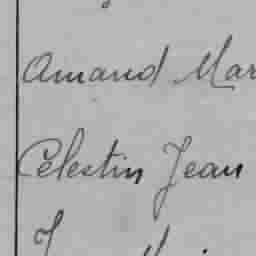 Amand Mar
Celestin Jean